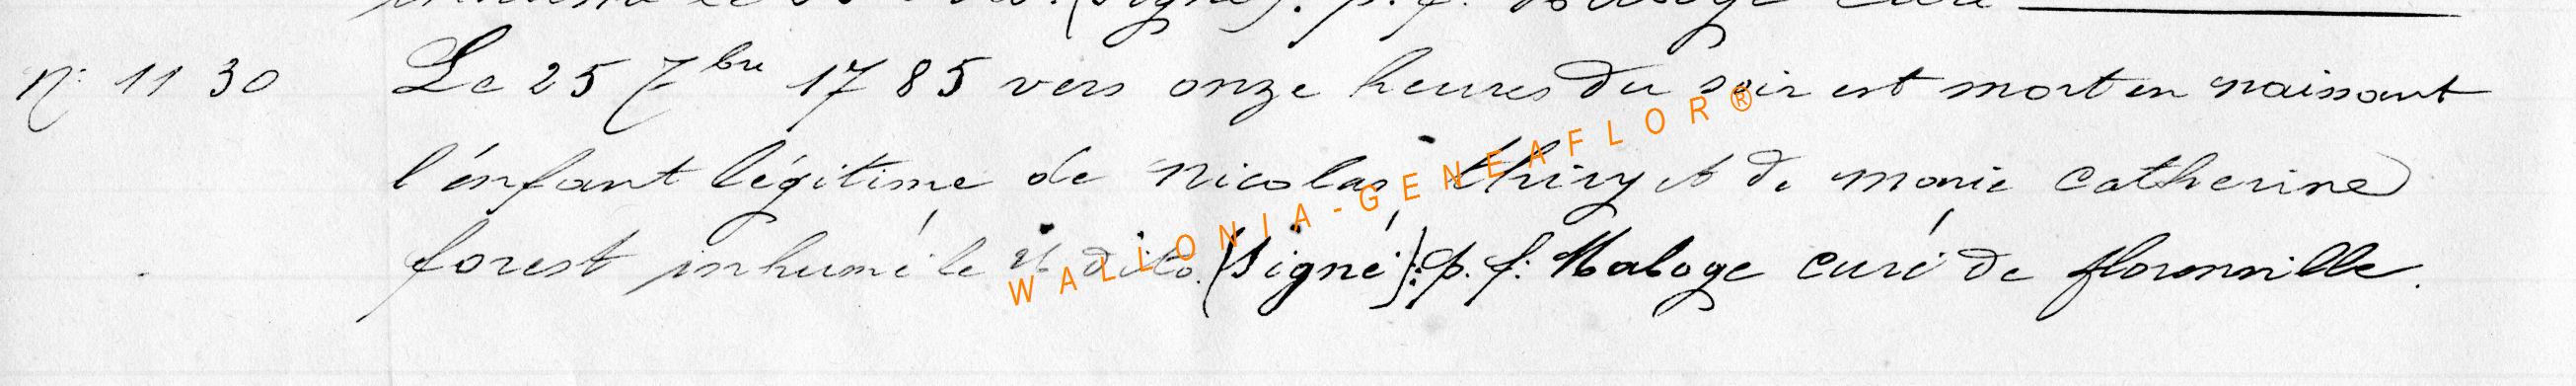 (signé). p. f. Maloge curé
N° 1130 Le 25 7bre 1785 vers onze heures du soir est mort en naissant
l'énfant légitime de Nicolas thiry et de marie catherine
forest inhumé le dito. (Signé): p. f. Maloge curé de florenville.
WALLONIA-GENEAFLOR®